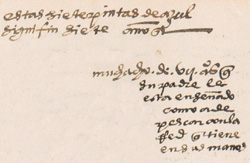 estas siete pintas de azul
significan siete años
muchacho. de. vii. años q̃
su padre le
esta enseñado
como a de
pescar con la
Red q̃ tiene
en las manos